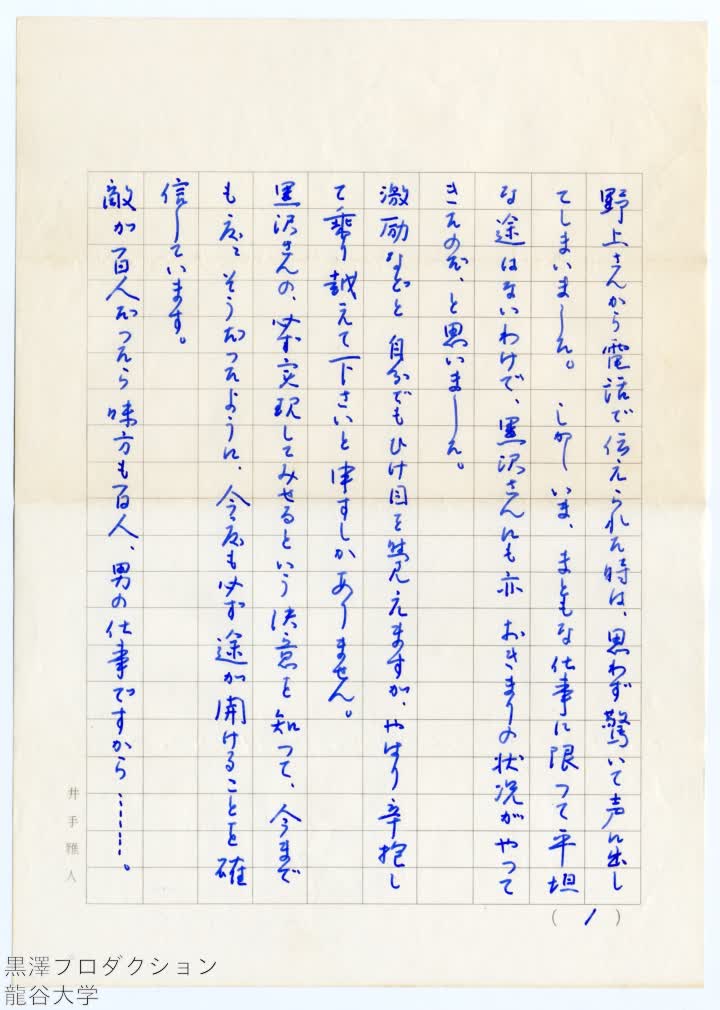 野上さんから電話で伝えられた時は、思わず驚いて声に出し
てしまいました。しかしいま、まともな仕事に限って平坦
な途はないわけで、黒沢さんにも亦おきまりの状況がやって
きたのだ、と思いました。
激励などと自分でもひけ目を覚えますが、やはり辛抱し
て乗り越えて下さいと申すしかありません。
黒沢さんの、必ず実現してみせるという決意を知って、今まで
も度々そうだったように、今度も必ず途が開けることを確
信しています。
敵が百人だったら味方も百人、男の仕事ですから………。
(1)
井手雅人
黒澤プロダクション
龍谷大学